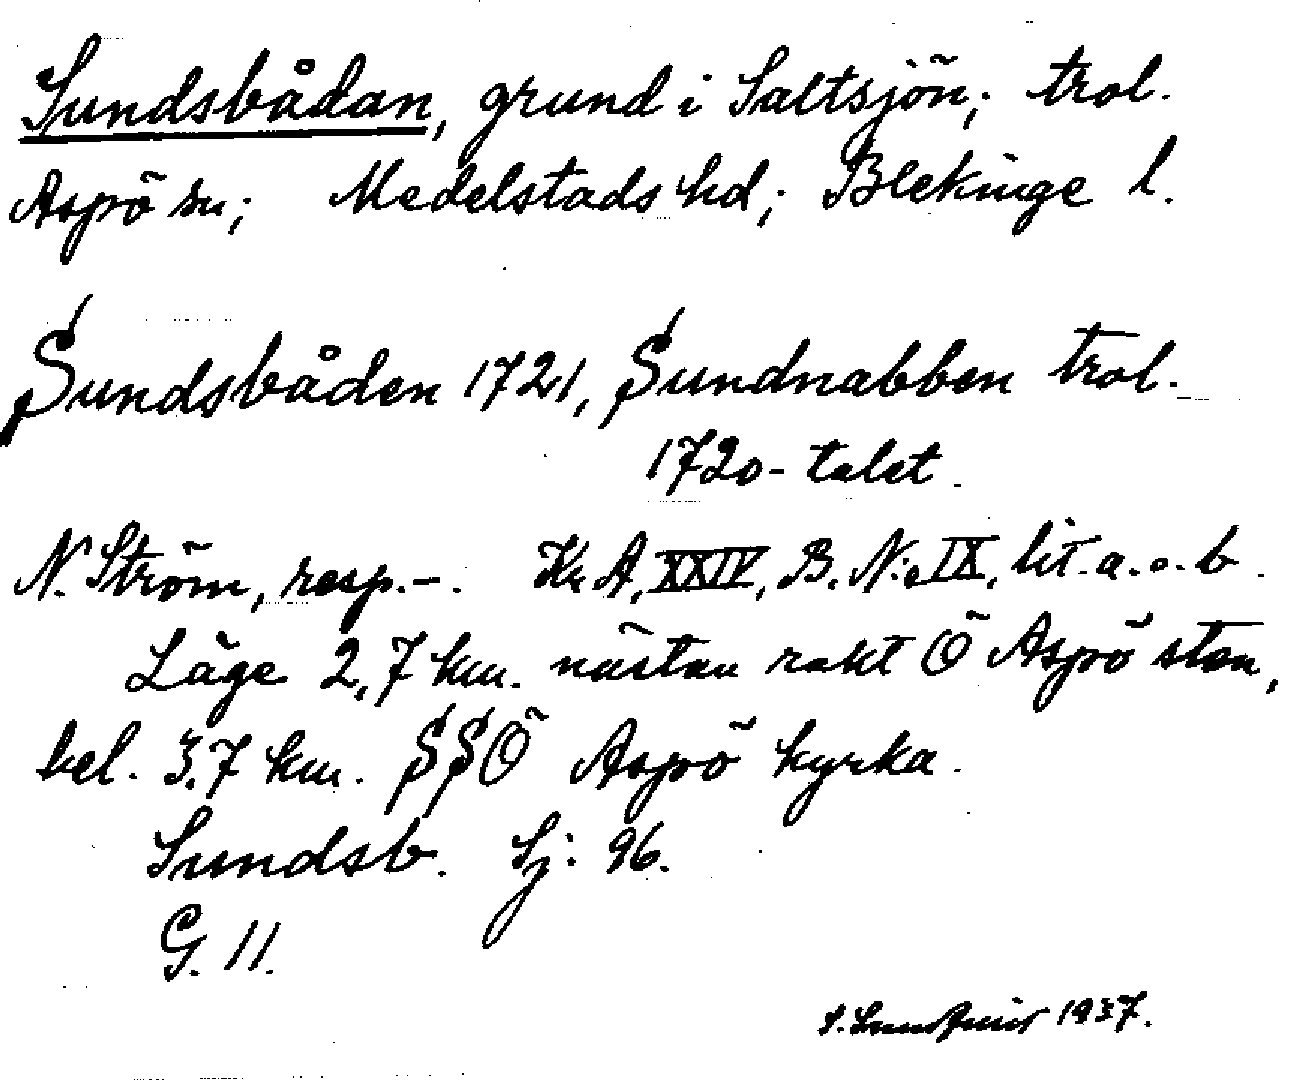 Sundsbådan, grund i Saltsjön; trol.
Aspö sn; Medelstads hd; Blekinge l.
Sundsbåden 1721, Sundnabben trol.
1720-talet.
N. Ström, resp. -. Kr A, XXIV, B. N:o IX, lit. a. o. b.
Läge 2,7 km. nästan rakt Ö Aspö stn,
bel. 3.7 km. SSÖ Aspö kyrka.
Sundsb. Sj: 96.
G. 11.
1937.